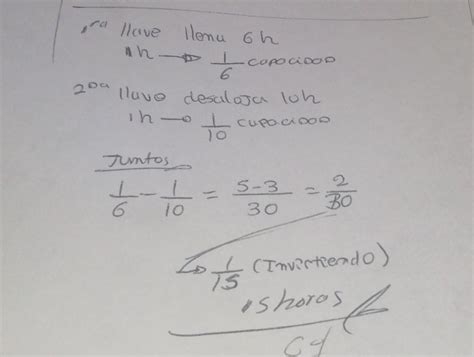 1ra llave llena 6h
1h → 1/6 capacidad
2Da llave desaloja 10h
1h → 1/10 capacidad
Juntos
1/6 - 1/10 = 5-3/30 = 2/30
→ 1/15 (Invirtiendo)
15 horas